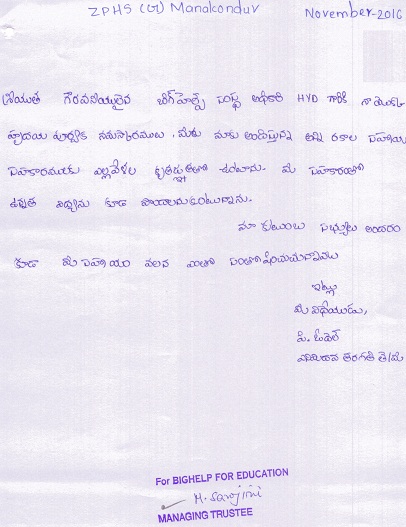 ZPHS (G) Manakondur
November-2016
శ్రీయుత గౌరవనీయులైన బిగ్‌హెల్ప్ సంస్థ అధికారి HYD గారికి నా యొక్క
హృదయ పూర్వక నమస్కారములు. మీరు మాకు అందిస్తున్న అన్ని రకాల సహాయ
సహకారములకు ఎల్లవేళల కృతజ్ఞతతో ఉంటాను. మీ సహకారంతో
ఉన్నత విద్యను కూడా పొందాలనుకుంటున్నాను.
మా కుటుంబ సభ్యులు అందరం
కూడా మీ సహాయం వలన ఎంతో
ఇట్లు
మీ విధేయుడు,
తరగతి
For BIGHELP FOR EDUCATION
M. Sarojini
MANAGING TRUSTEE